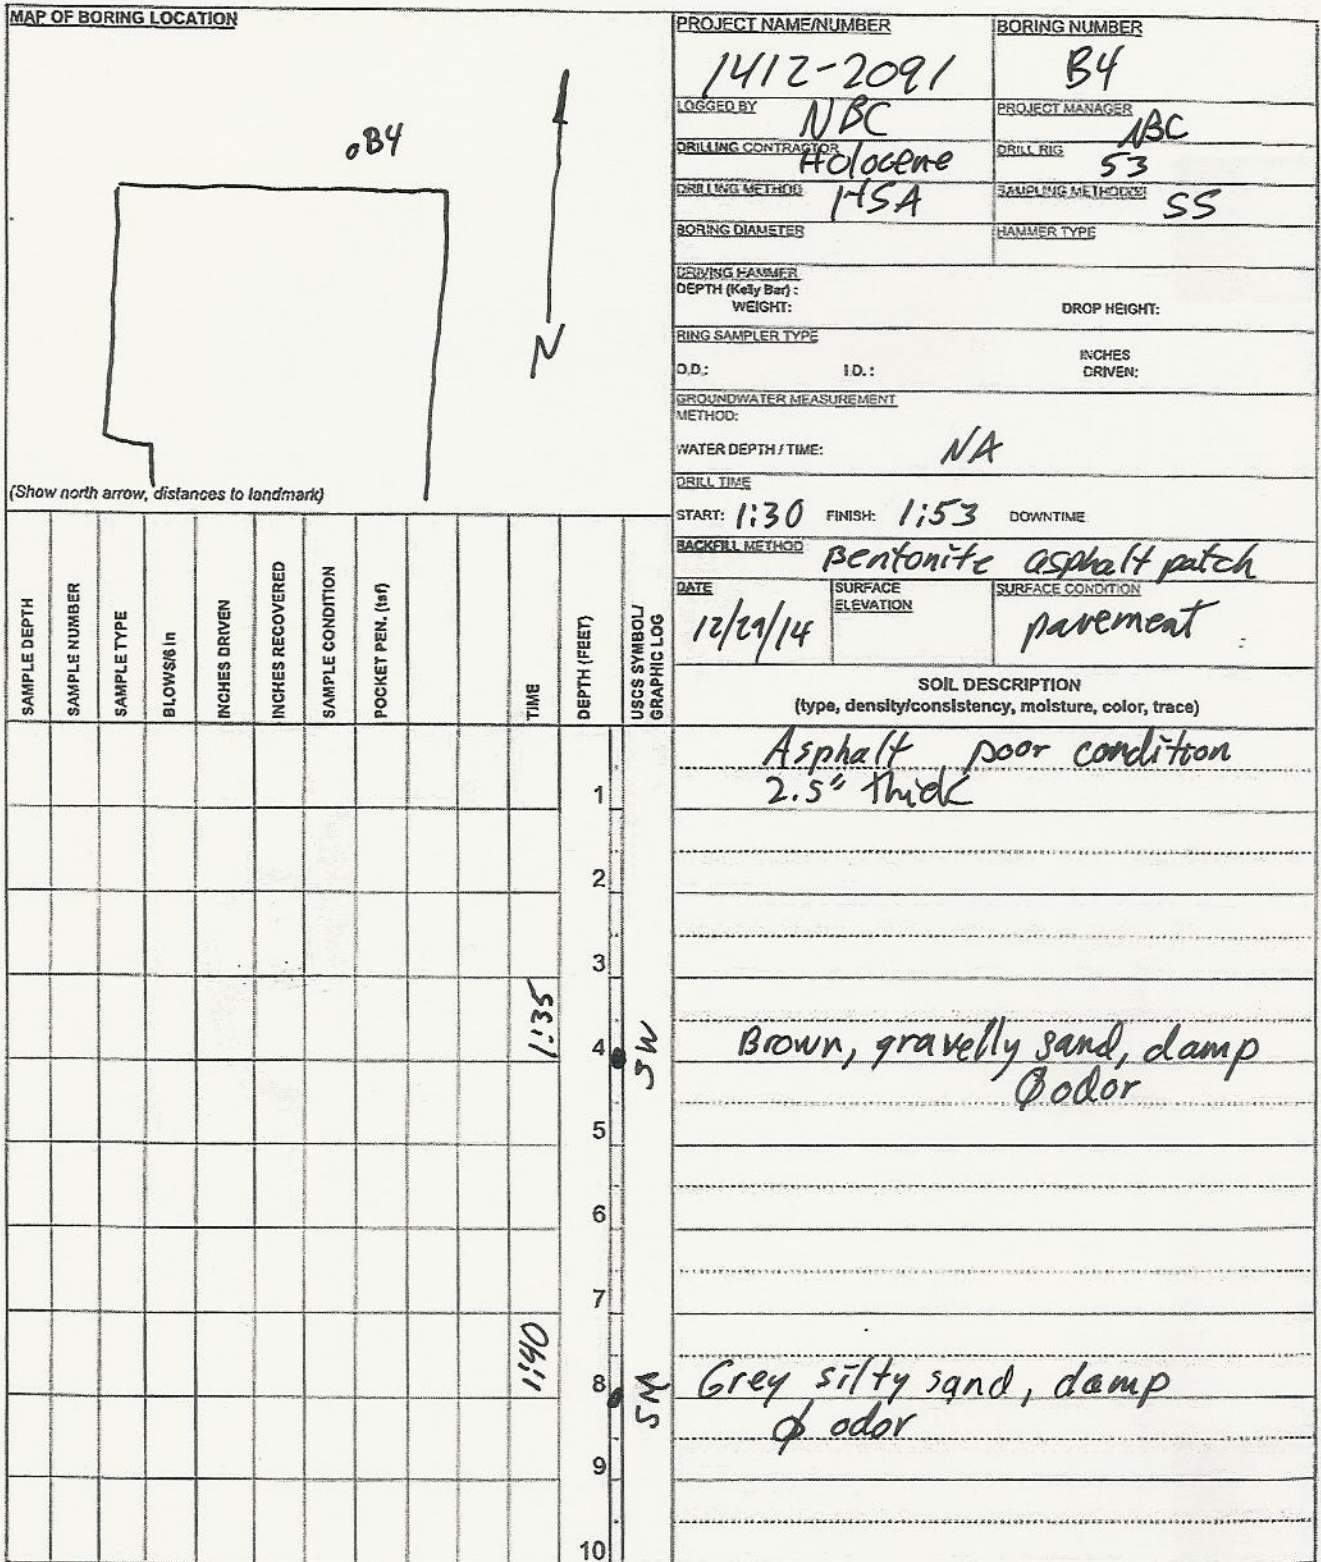 MAP OF BORING LOCATION
B4
N
(Show north arrow, distances to landmark)
PROJECT NAME/NUMBER
1412-2091
BORING NUMBER
B4
LOGGED BY NBC
PROJECT MANAGER NBC
DRILLING CONTRACTOR Holocene
DRILL RIG 53
DRILLING METHOD HSA
SAMPLING METHOD(S) SS
BORING DIAMETER
HAMMER TYPE
DRIVING HAMMER
DEPTH (Kelly Bar) :
WEIGHT:
DROP HEIGHT:
RING SAMPLER TYPE
O.D.:
I.D. :
INCHES
DRIVEN:
GROUNDWATER MEASUREMENT
METHOD:
WATER DEPTH / TIME: NA
DRILL TIME
START: 1:30 FINISH: 1:53 DOWNTIME
BACKFILL METHOD Bentonite asphalt patch
DATE
12/29/14
SURFACE
ELEVATION
SURFACE CONDITION
pavement
SAMPLE DEPTH
SAMPLE NUMBER
SAMPLE TYPE
BLOWS/6 in
INCHES DRIVEN
INCHES RECOVERED
SAMPLE CONDITION
POCKET PEN, (tsf)
TIME
DEPTH (FEET)
USCS SYMBOL/
GRAPHIC LOG
SOIL DESCRIPTION
(type, density/consistency, moisture, color, trace)
Asphalt poor condition
2.5" thick
1
2
3
1:35
4
SW
Brown, gravelly sand, damp
Ø odor
5
6
7
1:40
8
SM
Grey silty sand, damp
Ø odor
9
10